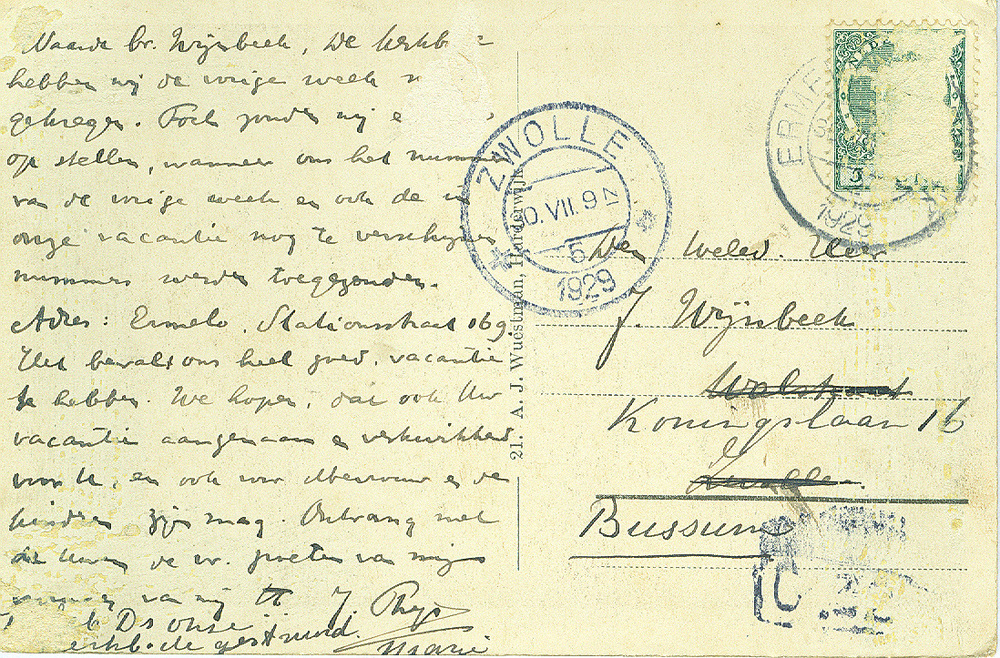 Waarde br. Wijnbeek, De kerkb
hebben wij de vorige week
gekregen. Toch zouden wij
op stellen, wanneer ons het nummer
van de vorige week en ook de
onze vacantie nog te verschijnen
nummers werden toegezonden.
Adres: Ermelo, Stationsstraat 169
Het bevalt ons heel goed, vacantie
te hebben. We hopen, dat ook Uw
vacantie aangenaam en verkwikkend
voor U, en ook voor Mevrouw en de
kinderen zijn mag. Ontvang met
de Uwen de vr. groeten van mijn
van mij tt J.
Ds onze
gestuurd.
Marie
21. A. J. Wuestman, Harderwijk
ZWOLLE
VII. 9
5
1929
ERME
1929
Den Weled. Heer
J. Wijnbeek
Walstraat
Koningslaan 16
Zwolle.
Bussum